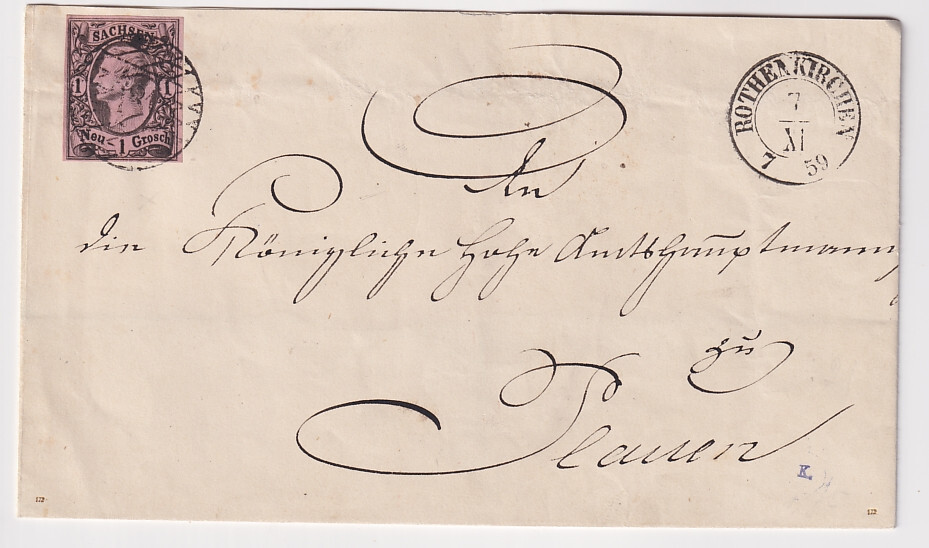 SACHSEN
1 1
Neu- 1 Grosch
ROTHENKIRCHEN
7
XI
7 59
An
die Königliche Hohe Amtshauptmann,
zu
Plauen
K.
122 122